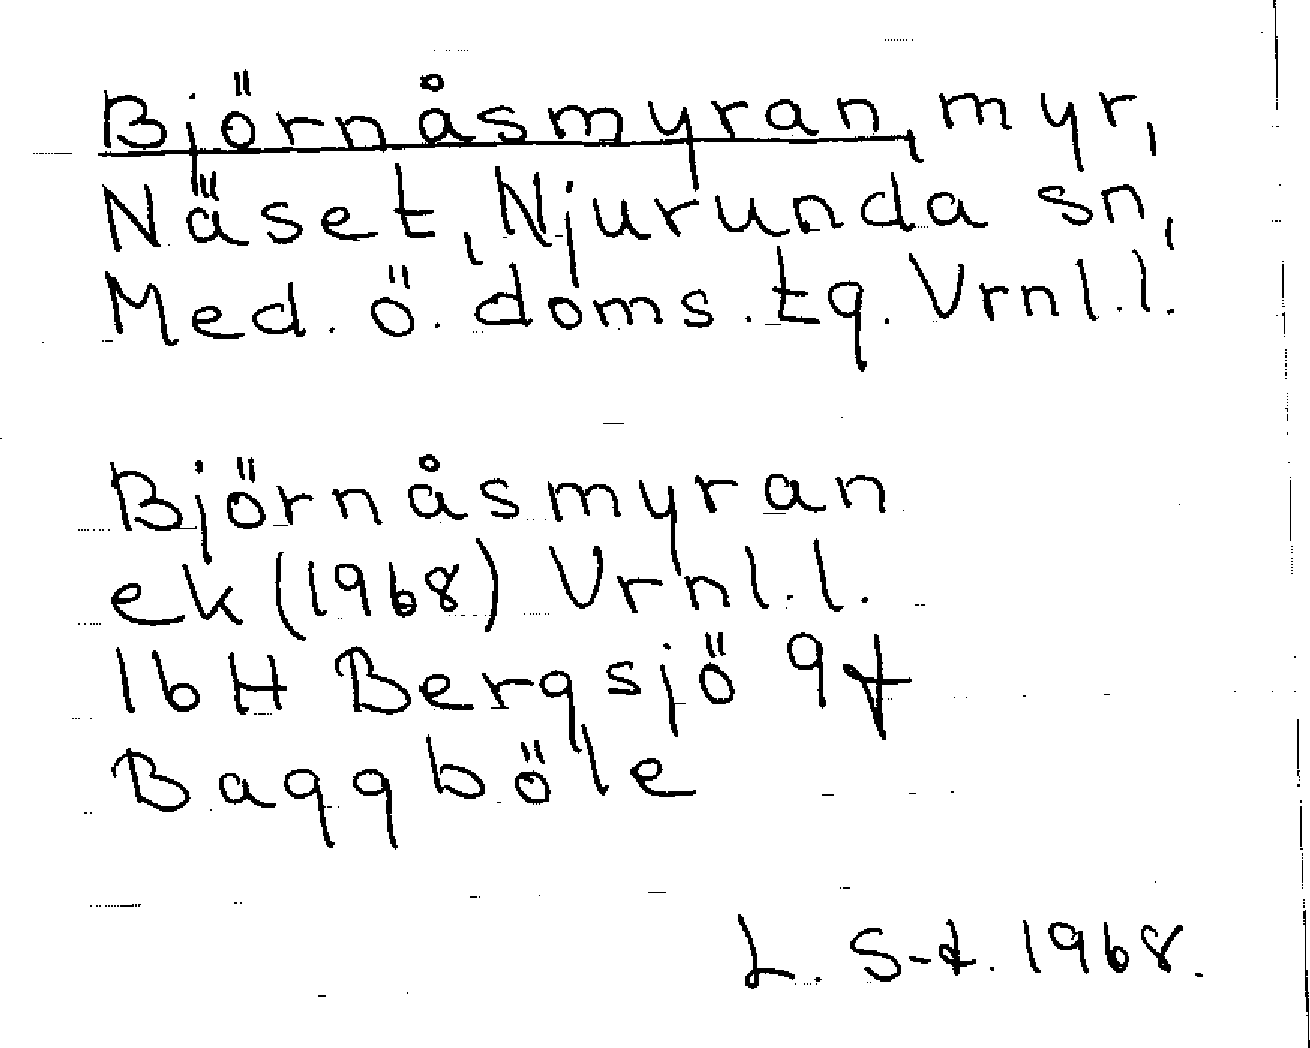 Björnåsmyran, myr,
Näset, Njurunda sn,
Med. ö. doms. tg. Vrnl.l.
Björnåsmyran
ek (1968) Vrnl.l.
16H Bergsjö 9f
Baggböle
L. S-t. 1968.